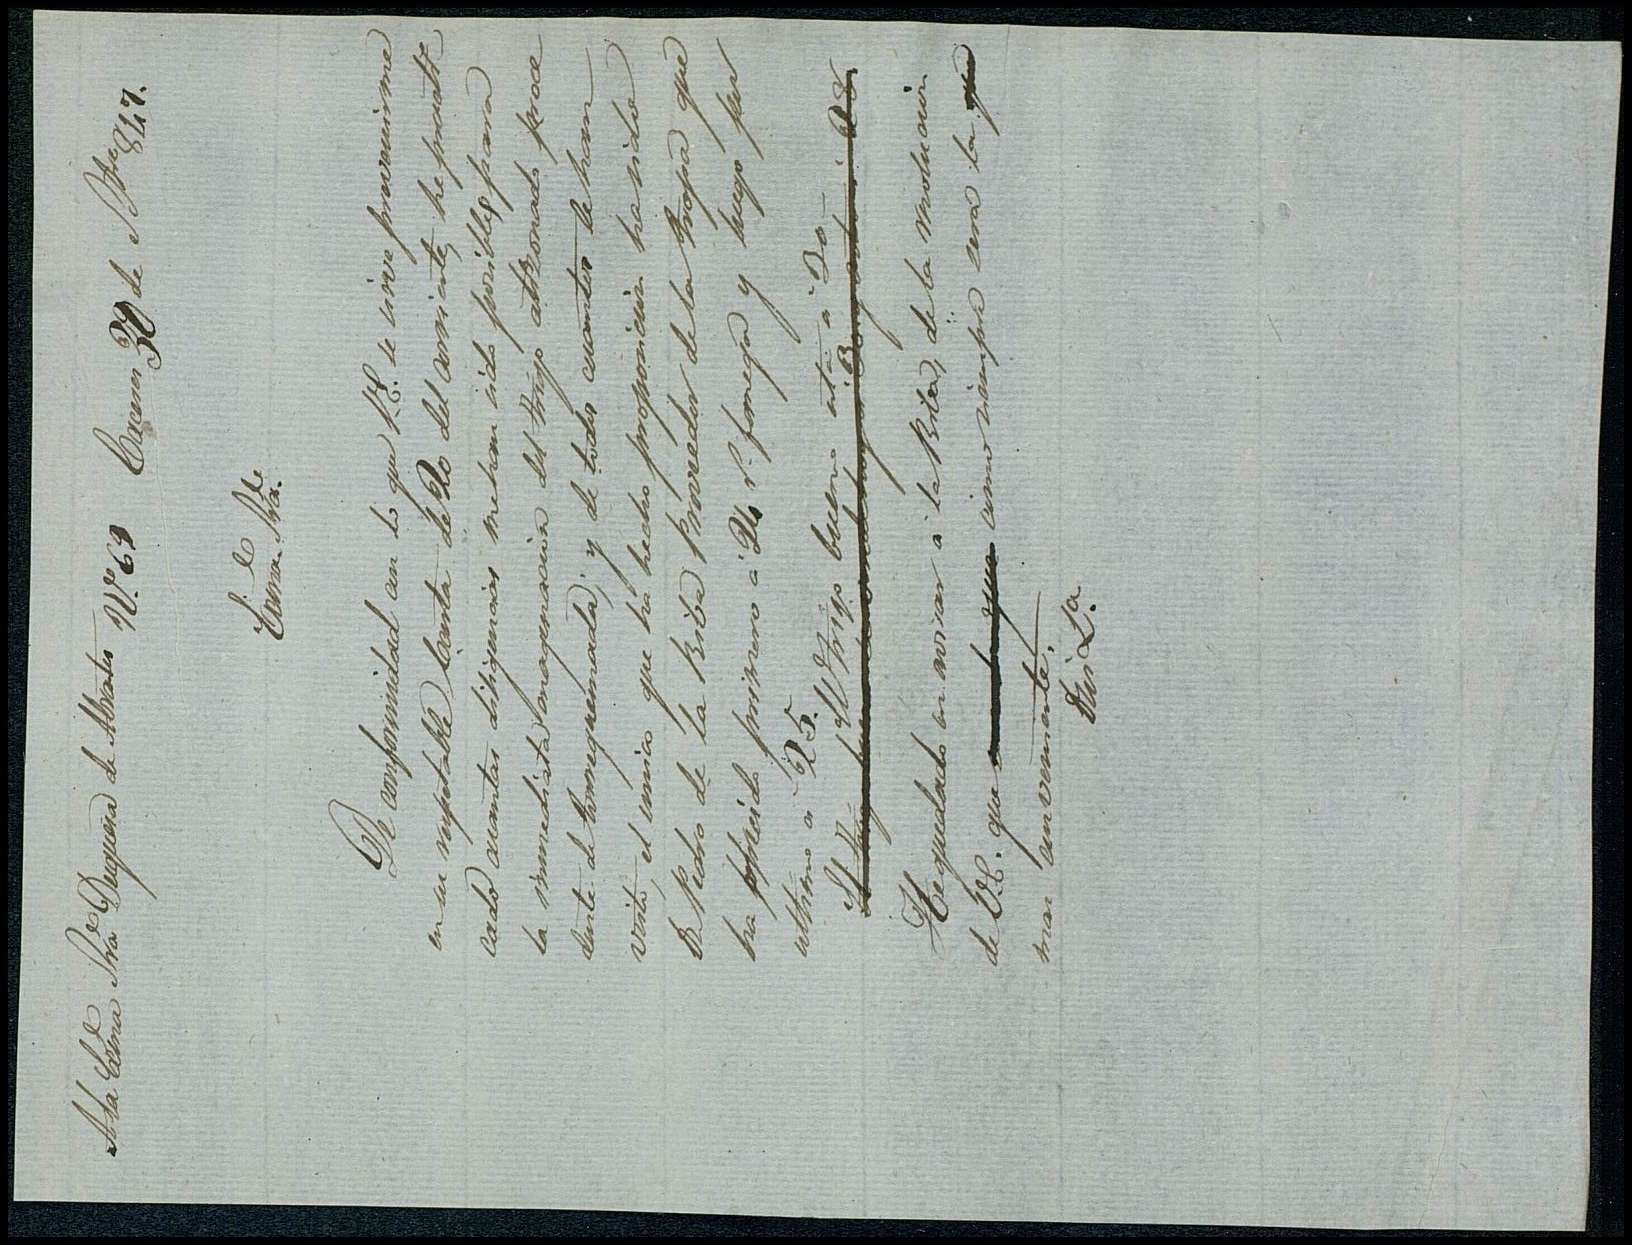 A la Exma Sra Duquesa de Abrantes Nº 69 Caceres 30 de Sbre 847.
Exma. Sra.
De conformidad con lo que V.E. se sirve prevenirme
en su respetable carta de 20 del corriente, he practi-
cado cuantas diligencias me han sido posibles para
la inmediata enagenacion del trigo atroxonado proce
dente de tromquemada; y de todos cuantos le han
visto, el unico que ha hecho proposicion ha sido
D. Pedro de la Riba Provedor de la tropa que
ha ofrecido primero a 24 r.s fanega y luego por
ultimo a 25.
El trigo bueno está a 30
He quedado en avisar a la Riba, de la resolucion
de V.E. que como siempre será la
mas conveniente.
Dios La.